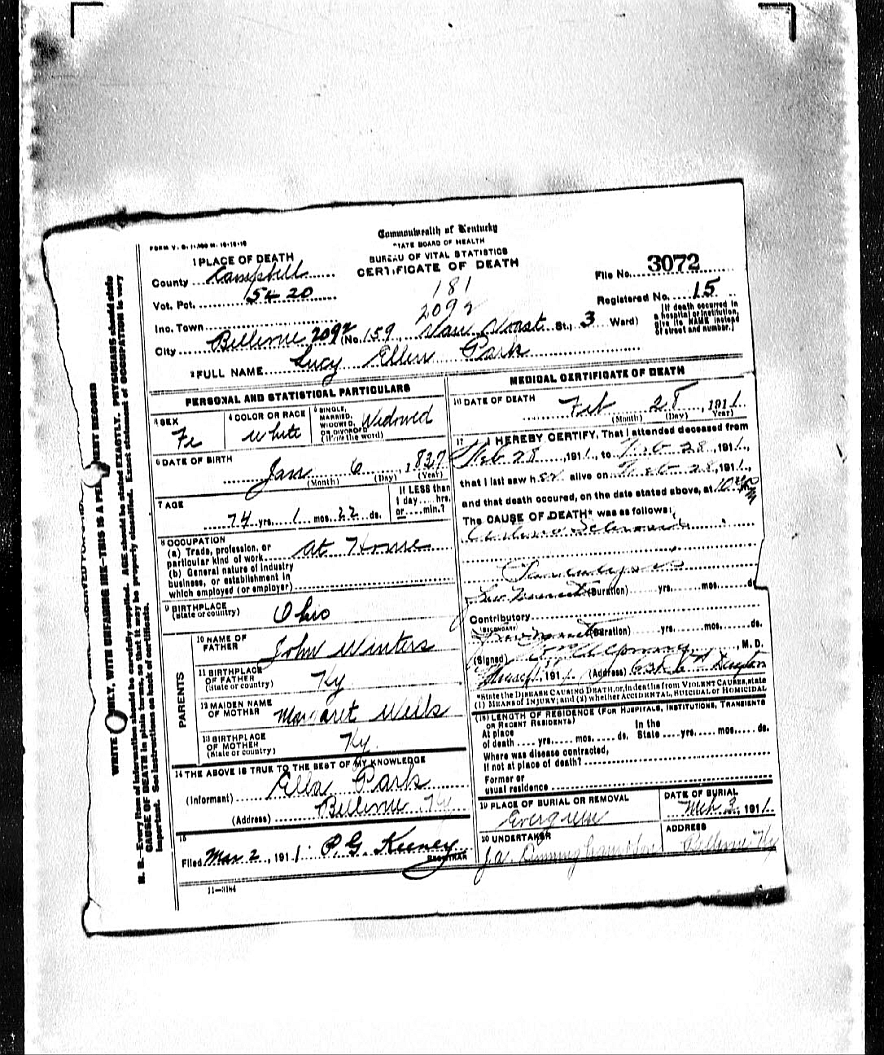 FORM V. S.
Commonwealth of Kentucky
STATE BOARD OF HEALTH
BUREAU OF VITAL STATISTICS
CERTIFICATE OF DEATH
1 PLACE OF DEATH
County Campbell
Vot. Pct. 5420
Inc. Town
City Bellevue 2092 (No. 159 St., 3 Ward)
181
2092
File No. 3072
Registered No. 15
[If death occurred in a hospital or institution, give its NAME instead of street and number.]
2 FULL NAME Lucy Ellen Park
PERSONAL AND STATISTICAL PARTICULARS
3 SEX Fe
4 COLOR OR RACE White
5 SINGLE, MARRIED, WIDOWED, OR DIVORCED (Write the word) Widowed
6 DATE OF BIRTH
Jan 6, 1837
(Month) (Day) (Year)
7 AGE
74 yrs. 1 mos. 22 ds.
If LESS than 1 day.....hrs. or.....min.?
8 OCCUPATION
(a) Trade, profession, or particular kind of work At Home
(b) General nature of industry business, or establishment in which employed (or employer)
9 BIRTHPLACE (State or country) Ohio
PARENTS
10 NAME OF FATHER John Winters
11 BIRTHPLACE OF FATHER (State or country) Ky
12 MAIDEN NAME OF MOTHER Margaret
13 BIRTHPLACE OF MOTHER (State or country) Ky.
14 THE ABOVE IS TRUE TO THE BEST OF MY KNOWLEDGE
(Informant) Ella Park
(Address) Bellevue Ky
15
Filed Mar 2, 1911. P. G. Keeney
REGISTRAR
MEDICAL CERTIFICATE OF DEATH
16 DATE OF DEATH
Feb 28, 1911.
(Month) (Day) (Year)
17 I HEREBY CERTIFY, That I attended deceased from
Feb 28, 1911, to Feb 28, 1911,
that I last saw her alive on Feb 28, 1911,
and that death occured, on the date stated above, at 10
The CAUSE OF DEATH* was as follows:
(Duration) yrs. mos. ds.
Contributory
(SECONDARY)
(Duration) yrs. mos. ds.
(Signed) , M. D.
1911. (Address) Dayton
*State the DISEASE CAUSING DEATH, or, in deaths from VIOLENT CAUSES, state
(1) MEANS OF INJURY; and (2) whether ACCIDENTAL, SUICIDAL OR HOMICIDAL
(18) LENGTH OF RESIDENCE (FOR HOSPITALS, INSTITUTIONS, TRANSIENTS OR RECENT RESIDENTS)
At place of death.....yrs.....mos.....ds. In the State.....yrs.....mos.....ds.
Where was disease contracted, if not at place of death?
Former or usual residence
19 PLACE OF BURIAL OR REMOVAL
Evergreen
DATE OF BURIAL
Mch 3, 1911.
20 UNDERTAKER
ADDRESS
Bellevue Ky
WRITE ONLY, WITH UNFADING INK—THIS IS A PERMANENT RECORD
N. B.—Every item of information should be carefully supplied. AGE should be stated EXACTLY. PHYSICIANS should state
CAUSE OF DEATH in plain terms, so that it may be properly classified. Exact statement of OCCUPATION is very
important. See instructions on back of certificate.
11—3184